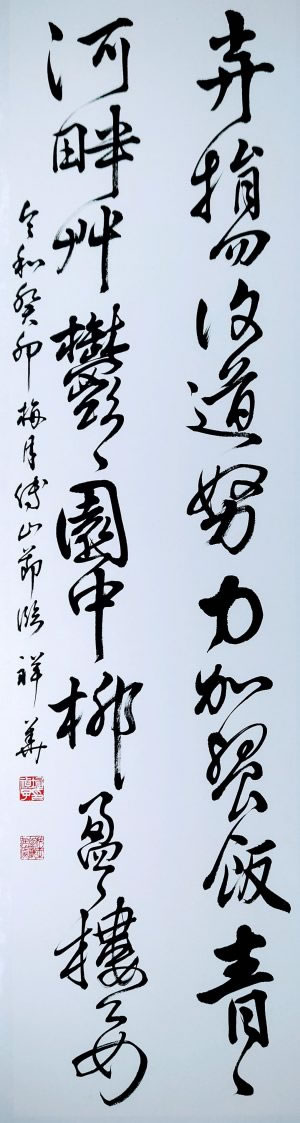 弃捐勿復道努力加餐飯青々
河畔艸鬱々園中柳盈々樓上女
令和癸卯梅月傅山節臨 祥華